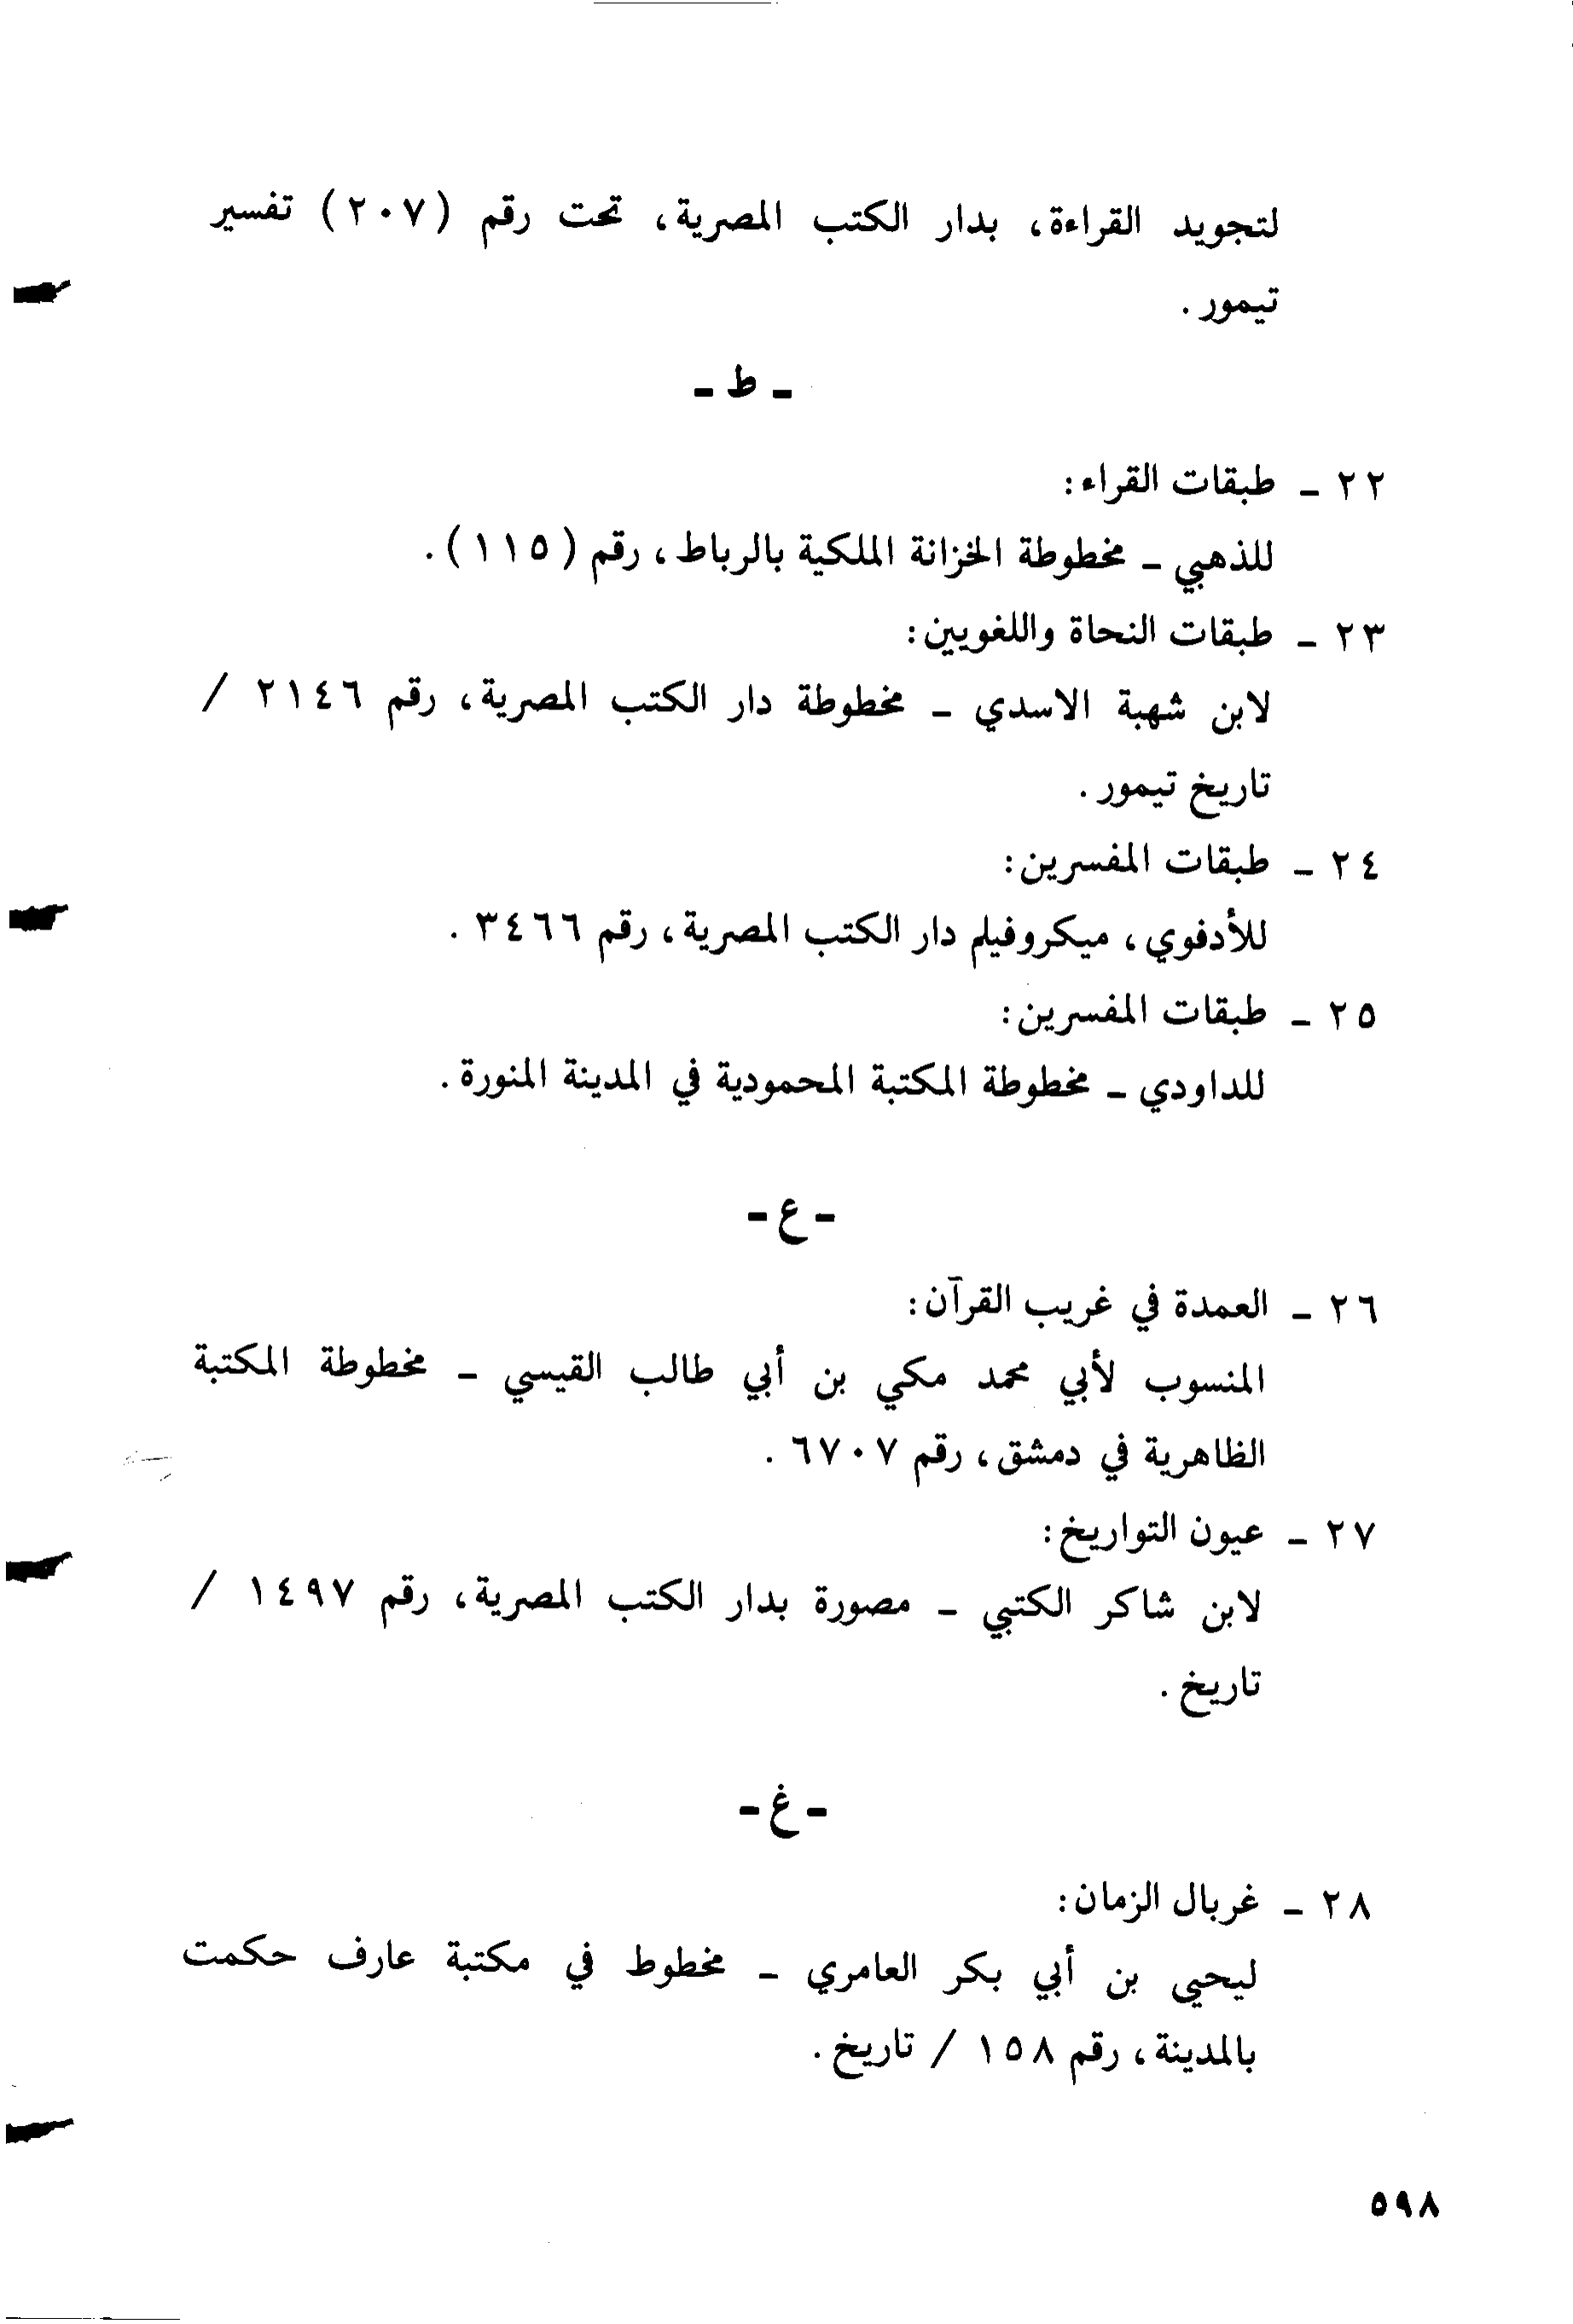 لتجويد القراءة، بدار الكتب المصرية، تحت رقم (٢٠٧) تفسير
تيمور.
ـ ط ـ
٢٢ ـ طبقات القراء:
للذهبي ـ مخطوطة الخزانة الملكية بالرباط، رقم (١١٥).
٢٣ ـ طبقات النحاة واللغويين:
لابن شهبة الاسدي ـ مخطوطة دار الكتب المصرية، رقم ٢١٤٦ /
تاريخ تيمور.
٢٤ ـ طبقات المفسرين:
للأدفوي، ميكروفيلم دار الكتب المصرية، رقم ٣٤٦٦.
٢٥ ـ طبقات المفسرين:
للداودي ـ مخطوطة المكتبة المحمودية في المدينة المنورة.
ـ ع ـ
٢٦ ـ العمدة في غريب القرآن:
المنسوب لأبي محمد مكي بن أبي طالب القيسي ـ مخطوطة المكتبة
الظاهرية في دمشق، رقم ٦٧٠٧.
٢٧ ـ عيون التواريخ:
لابن شاكر الكتبي ـ مصورة بدار الكتب المصرية، رقم ١٤٩٧ /
تاريخ.
ـ غ ـ
٢٨ ـ غربال الزمان:
ليحيى بن أبي بكر العامري ـ مخطوط في مكتبة عارف حكمت
بالمدينة، رقم ١٥٨ / تاريخ.
٥٩٨